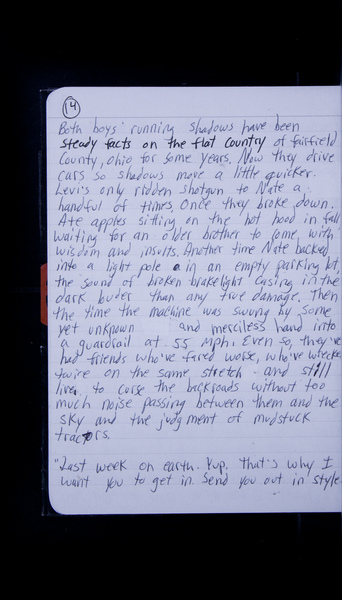 14
Both boys' running shadows have been
steady facts on the flat country of fairfield
County, Ohio for some years. Now they drive
cars so shadows move a little quicker.
Levi's only ridden shotgun to Nate a
handful of times. Once they broke down.
Ate apples sitting on the hot hood in fall
waiting for an older brother to come, with
wisdom and insults. Another time Nate backed
into a light pole in an empty parking lot,
the sound of broken brakelight casing in the
dark louder than any true damage. Then
the time the machine was swung by some
yet unknown and merciless hand into
a guardrail at 55 mph. Even so, they've
had friends who've fared worse, who've wrecked
twice on the same stretch - and still
live to curse the backroads without too
much noise passing between them and the
sky and the judgment of mudstuck
tractors.
"Last week on earth. Yup. That's why I
want you to get in. Send you out in style